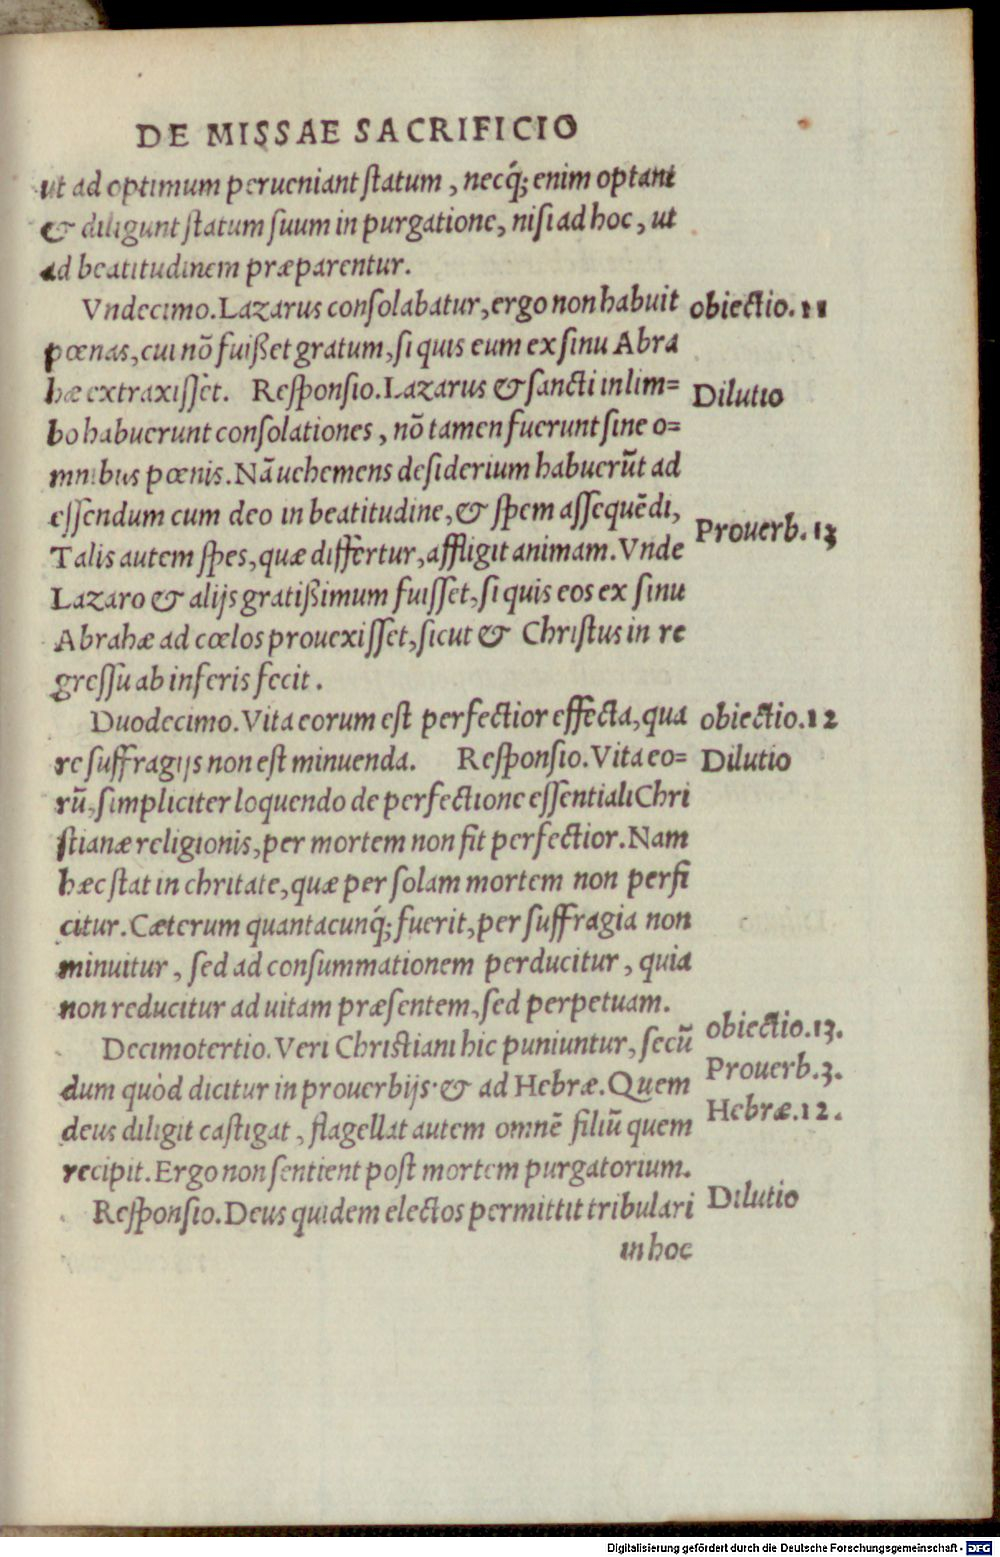 DE MISSAE SACRIFICIO
ut ad optimum perueniant ſtatum, necq́; enim optant
& diligunt ſtatum ſuum in purgatione, niſi ad hoc, ut
ad beatitudinem præparentur.
Vndecimo. Lazarus conſolabatur, ergo non habuit
obiectio. 11
pœnas, cui nõ fuiſſet gratum, ſi quis eum ex ſinu Abra
hæ extraxiſſet. Reſponſio. Lazarus & ſancti in lim=
Dilutio
bo habuerunt conſolationes, nõ tamen fuerunt ſine o=
mnibus pœnis. Nã uehemens deſiderium habuerũt ad
eſſendum cum deo in beatitudine, & ſpem aſſequẽdi,
Talis autem ſpes, quæ differtur, affligit animam. Vnde
Prouerb. 13
Lazaro & alijs gratißimum fuiſſet, ſi quis eos ex ſinu
Abrahæ ad cœlos prouexiſſet, ſicut & Chriſtus in re
greſſu ab inferis fecit.
Duodecimo. Vita eorum eſt perfectior effecta, qua
obiectio. 12
re ſuffragijs non eſt minuenda. Reſponſio. Vita eo=
Dilutio
rũ, ſimpliciter loquendo de perfectione eſſentiali Chri
ſtianæ religionis, per mortem non fit perfectior. Nam
hæc ſtat in chritate, quæ per ſolam mortem non perfi
citur. Cæterum quantacunq́; fuerit, per ſuffragia non
minuitur, ſed ad conſummationem perducitur, quia
non reducitur ad uitam præſentem, ſed perpetuam.
Decimotertio. Veri Chriſtiani hic puniuntur, ſecũ
obiectio. 13.
dum quòd dicitur in prouerbijs· & ad Hebræ. Quem
Prouerb. 3.
deus diligit caſtigat, flagellat autem omnẽ filiũ quem
Hebræ. 12.
recipit. Ergo non ſentient poſt mortem purgatorium.
Reſponſio. Deus quidem electos permittit tribulari
Dilutio
in hoc
Digitalisierung gefördert durch die Deutsche Forschungsgemeinschaft - DFG